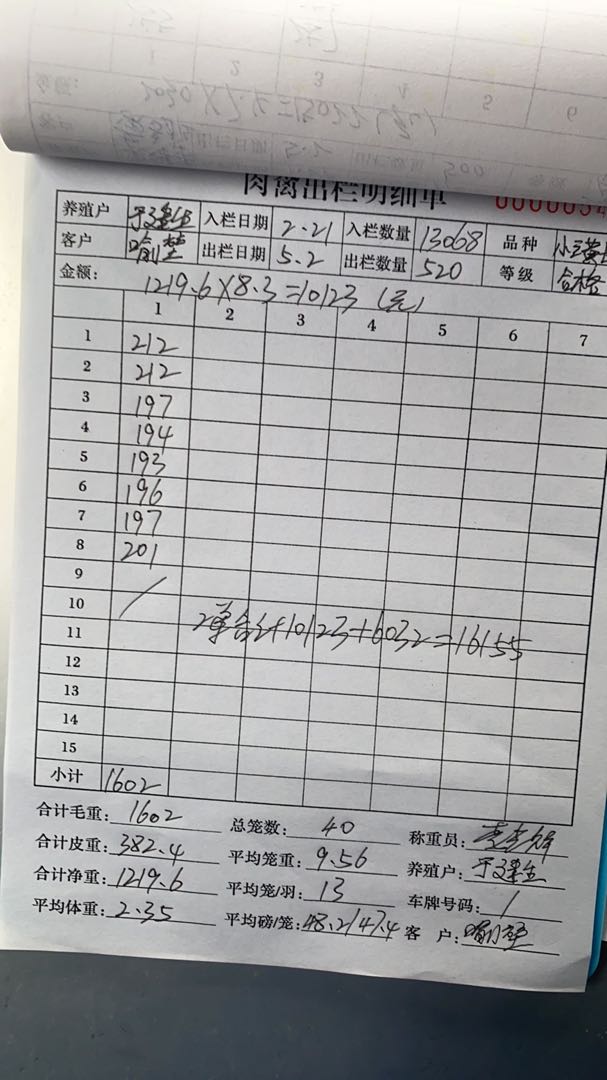 1 2 3 4 5 6
2030
肉禽出栏明细单
养殖户 于建生 入栏日期 2.21 入栏数量 13068 品种
客户 出栏日期 5.2 出栏数量 520 等级 合格
金额: 1219.6×8.3=10123(元)
1 2 3 4 5 6 7
1 212
2 212
3 197
4 194
5 193
6 196
7 197
8 201
9
10 /
11 2单合计10123+6032=16155
12
13
14
15
小计 1602
合计毛重: 1602 总笼数: 40 称重员:
合计皮重: 382.4 平均笼重: 9.56 养殖户: 于建生
合计净重: 1219.6 平均笼/羽: 13 车牌号码: /
平均体重: 2.35 平均磅/笼: 48.2/47.4 客 户: